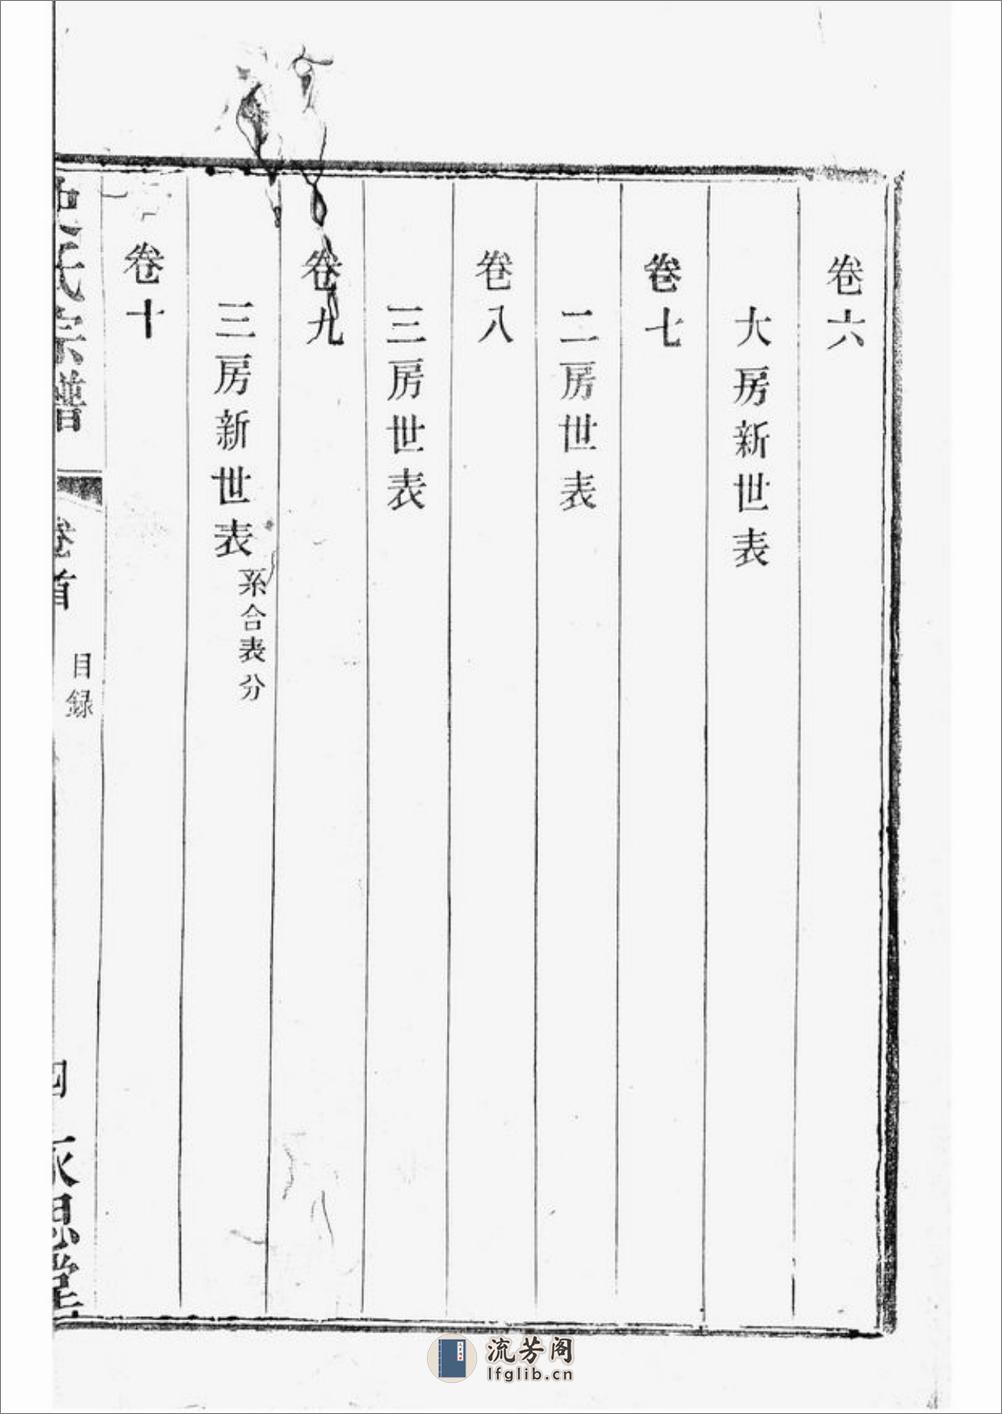 卷六
大房新世表
卷七
二房世表
卷八
三房世表
卷九
三房新世表
系合表分
卷十
史氏宗譜
卷首
目録
四
永思堂
流芳阁
lfglib.cn